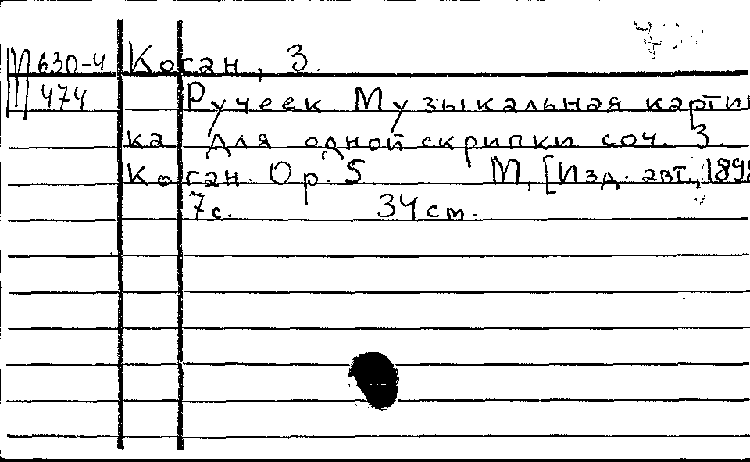 М 630-4 Коган, З.
474 Ручеек Музыкальная картин
ка для одной скрипки соч. З.
Коган. Ор. 5 М, [Изд. авт., 1898
7 с. 34 см.